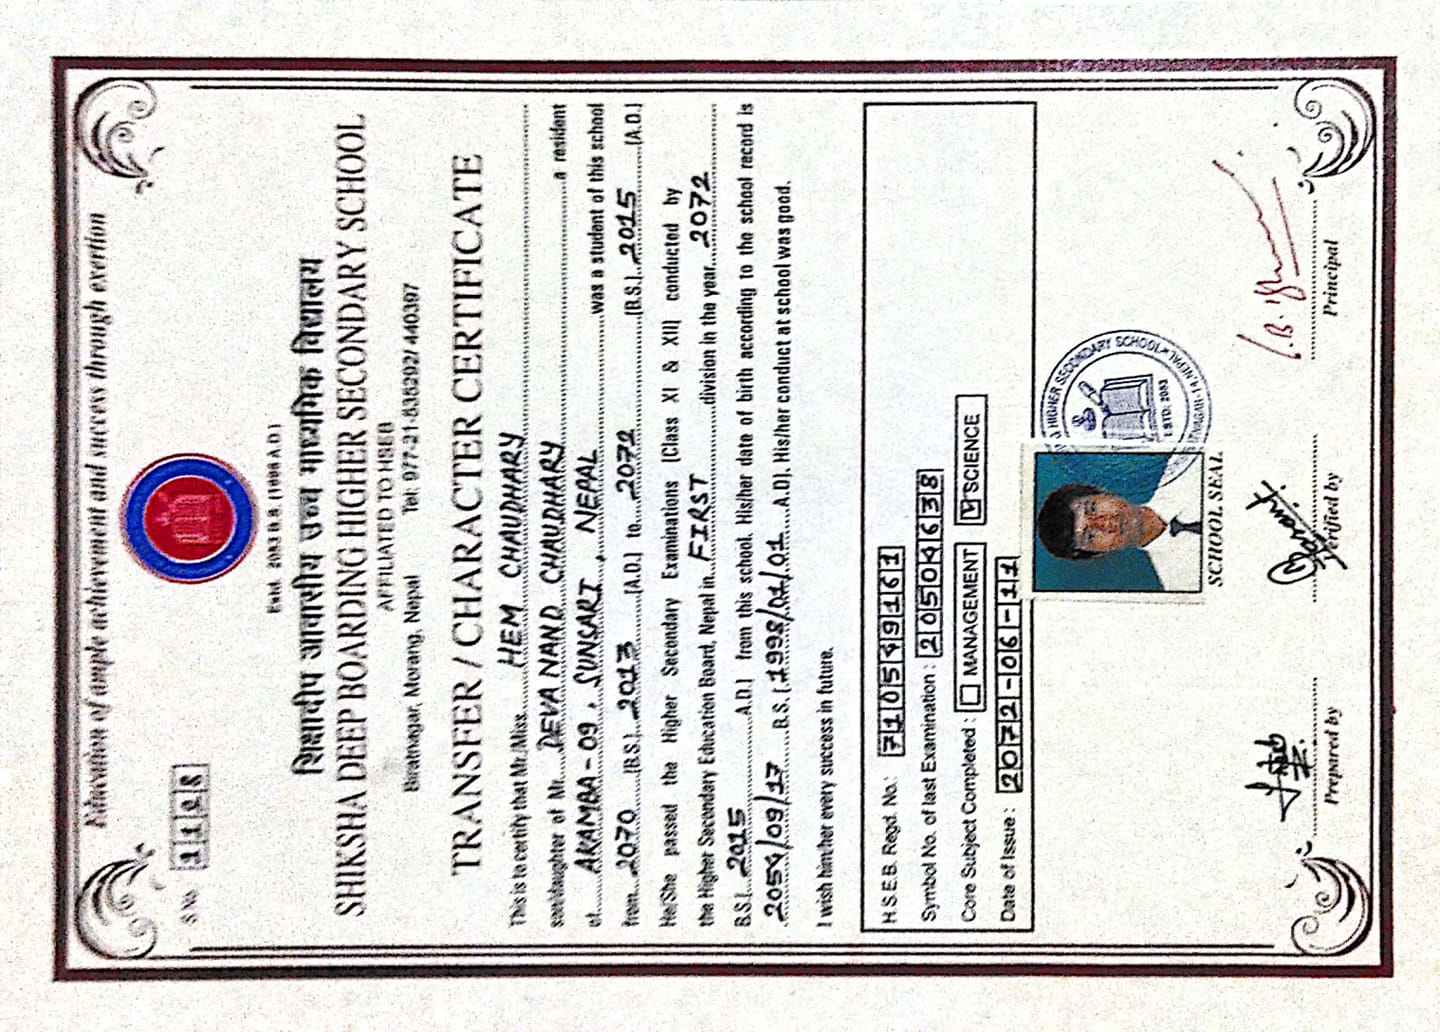 Education of ample achievement and success through exertion
S.No. 1128
Estd. 2053 B.S. (1996 A.D.)
शिक्षादीप आवासीय उच्च माध्यमिक विद्यालय
SHIKSHA DEEP BOARDING HIGHER SECONDARY SCHOOL
AFFILIATED TO HSEB
Biratnagar, Morang, Nepal Tel: 977-21-535292/ 440397
TRANSFER / CHARACTER CERTIFICATE
This is to certify that Mr./Miss HEM CHAUDHARY
son/daughter of Mr. DEVA NAND CHAUDHARY a resident
of AKAMBA-09, SUNSARI, NEPAL was a student of this school
from 2070 (B.S.) 2013 (A.D.) to 2072 (B.S.) 2015 (A.D.)
He/She passed the Higher Secondary Examinations (Class XI & XII) conducted by
the Higher Secondary Education Board, Nepal in FIRST division in the year 2072
B.S.( 2015 A.D.) from this school. His/her date of birth according to the school record is
2054/09/17 B.S. (1998/01/01 A.D). His/her conduct at school was good.
I wish him/her every success in future.
H.S.E.B. Regd. No.: 710549161
Symbol No. of last Examination : 20504638
Core Subject Completed : MANAGEMENT SCIENCE
Date of Issue : 2072-06-11
HIGHER SECONDARY SCHOOL
ESTD: 2053
BIRATNAGAR-14, NEPAL
SCHOOL SEAL
Basant
Prepared by Verified by Principal